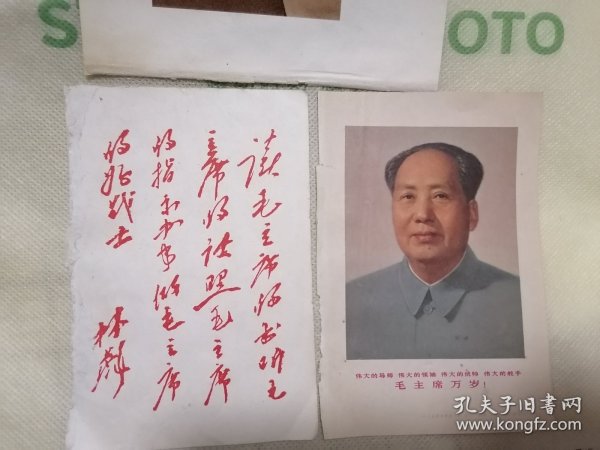 S OTO
读毛主席的书听毛
主席的话照毛主席
的指示办事做毛主席
的好战士
林彪
伟大的导师 伟大的领袖 伟大的统帅 伟大的舵手
毛主席万岁!
孔夫子旧书网
www.kongfz.com